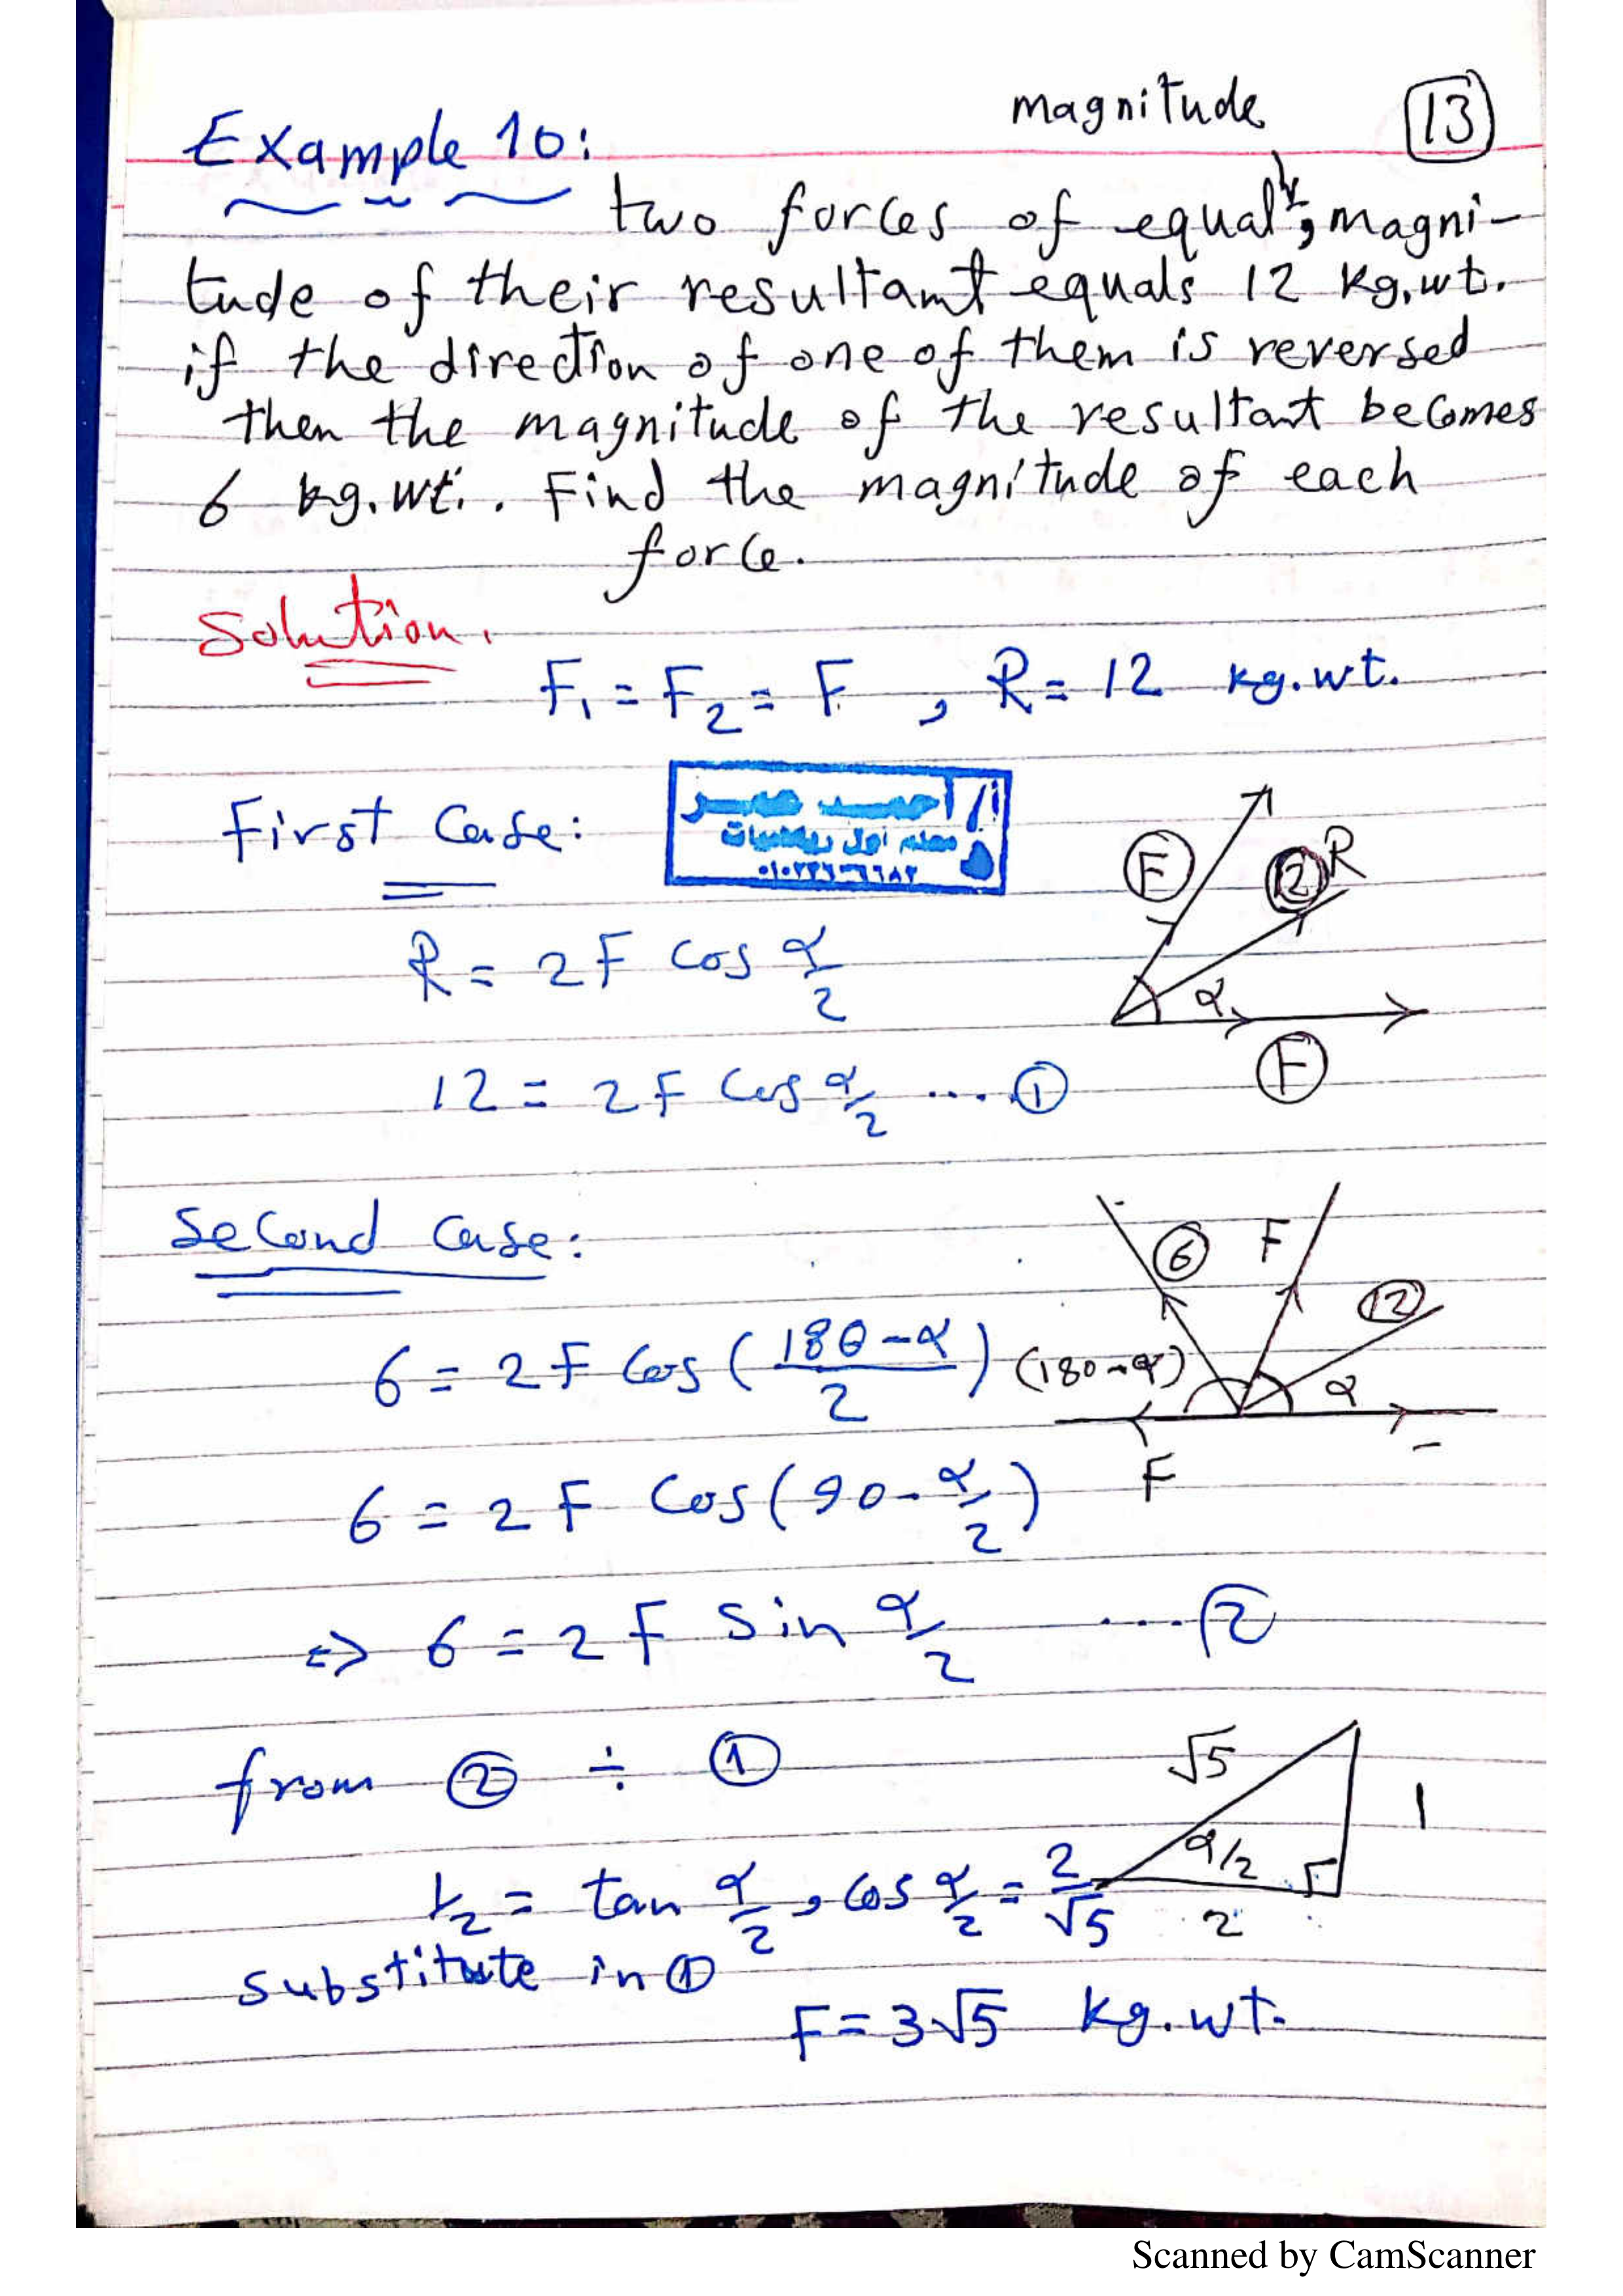 magnitude
13
Example 10:
two forces of equal, magni-
tude of their resultant equals 12 kg.wt.
if the direction of one of them is reversed
then the magnitude of the resultant becomes
6 kg.wt. . Find the magnitude of each
force.
Solution.
F₁ = F₂ = F , R = 12 kg.wt.
أ/ أحمد عمر
معلم أول رياضيات
First Case:
F
12 R
α
F
R = 2F cos α/2
12 = 2F cos α/2 .... ①
Second Case:
6 F
12
6 = 2F cos ( 180-α / 2 ) (180-α) α
F
6 = 2F cos (90 - α/2)
⇒ 6 = 2F sin α/2 .... ②
from ② ÷ ①
√5
1
α/2
½ = tan α/2 , cos α/2 = 2/√5
2
substitute in ①
F = 3√5 kg.wt.
Scanned by CamScanner